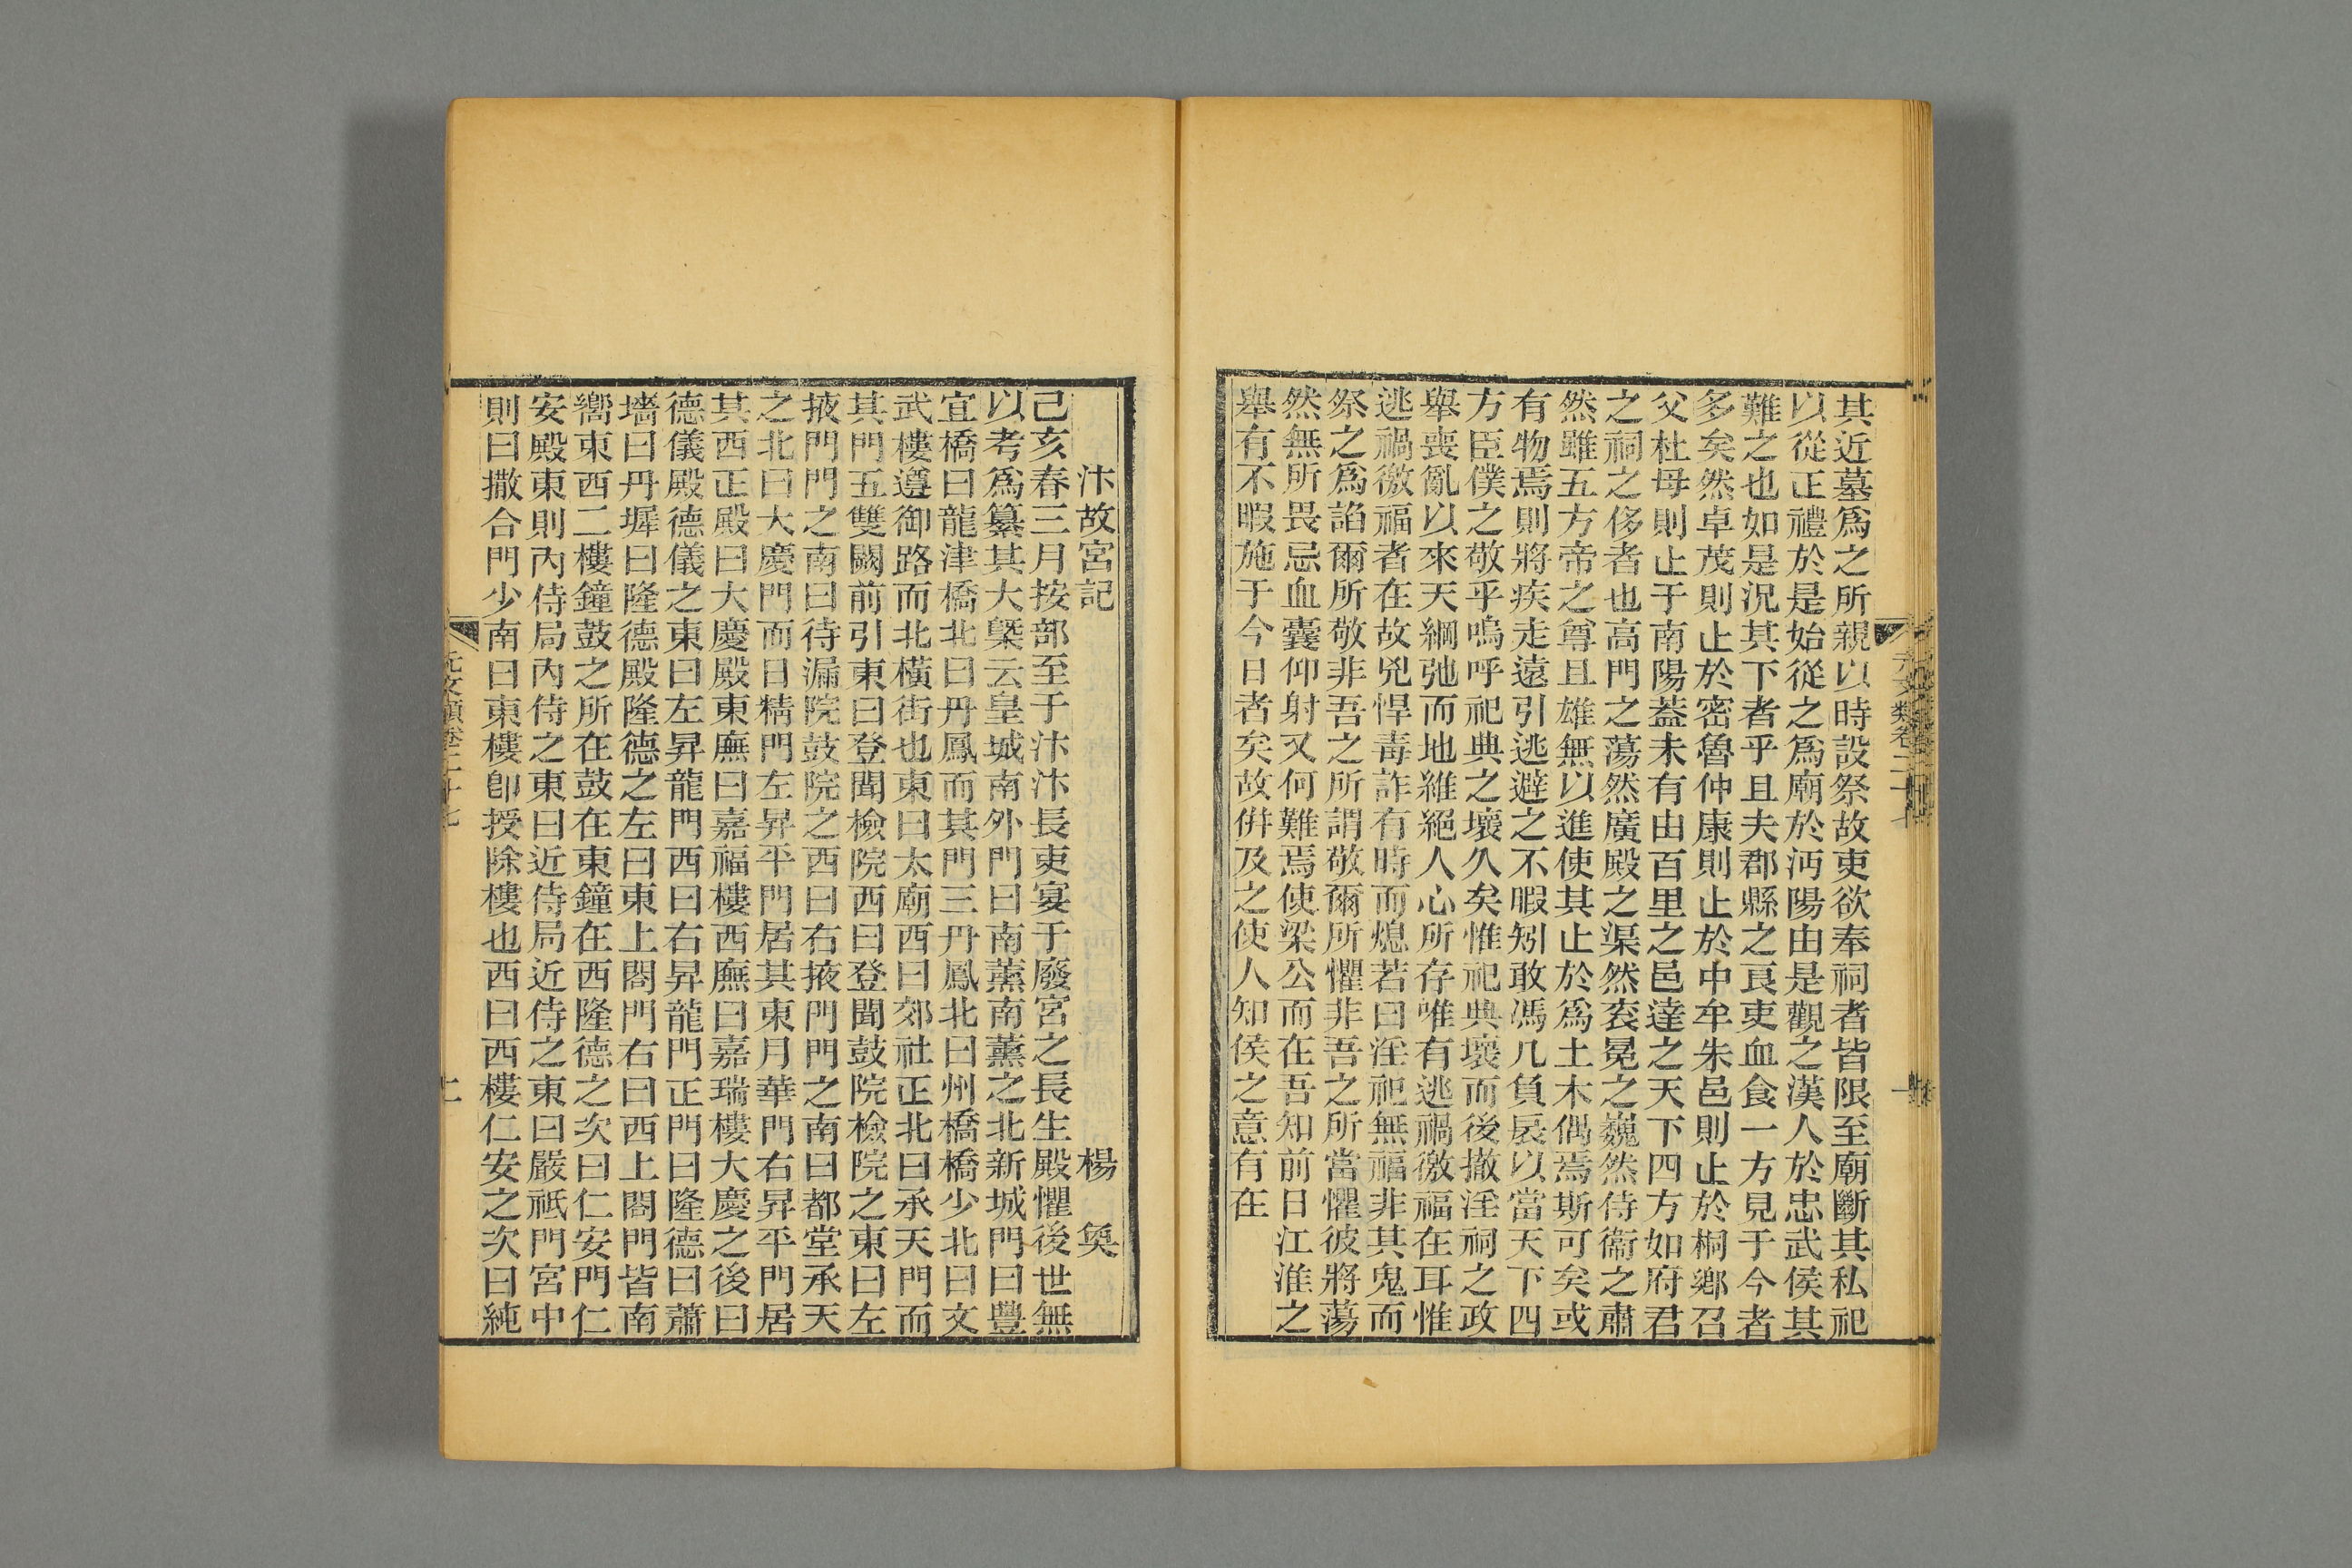 其近墓爲之所親以時設祭故吏欲奉祠者皆限至廟斷其私祀
以從正禮於是始從之爲廟於沔陽由是觀之漢人於忠武侯其
難之也如是況其下者乎且夫郡縣之良吏血食一方見于今者
多矣然卓茂則止於密魯仲康則止於中牟朱邑則止於桐鄉召
父杜母則止于南陽葢未有由百里之邑達之天下四方如府君
之祠之侈者也高門之蕩然廣殿之渠然衮冕之巍然侍衞之肅
然雖五方帝之尊且雄無以進使其止於爲土木偶焉斯可矣或
有物焉則將疾走遠引逃避之不暇矧敢馮几負扆以當天下四
方臣僕之敬乎嗚呼祀典之壞久矣惟祀典壞而後撤淫祠之政
舉喪亂以來天綱弛而地維絕人心所存唯有逃禍徼福在耳惟
逃禍徼福者在故兇悍毒詐有時而熄若曰淫祀無福非其鬼而
祭之爲諂爾所敬非吾之所謂敬爾所懼非吾之所當懼彼將蕩
然無所畏忌血囊仰射又何難焉使梁公而在吾知前日江淮之
舉有不暇施于今日者矣故倂及之使人知侯之意有在
汴故宮記 楊奐
己亥春三月按部至于汴汴長吏宴于廢宮之長生殿懼後世無
以考爲纂其大槩云皇城南外門曰南薰南薰之北新城門曰豐
宜橋曰龍津橋北曰丹鳳而其門三丹鳳北曰州橋橋少北曰文
武樓遵御路而北橫街也東曰太廟西曰郊社正北曰承天門而
其門五雙闕前引東曰登聞檢院西曰登聞鼓院檢院之東曰左
掖門門之南曰待漏院鼓院之西曰右掖門門之南曰都堂承天
之北曰大慶門而日精門左昇平門居其東月華門右昇平門居
其西正殿曰大慶殿東廡曰嘉福樓西廡曰嘉瑞樓大慶之後曰
德儀殿德儀之東曰左昇龍門西曰右昇龍門正門曰隆德曰蕭
墻曰丹墀曰隆德殿隆德之左曰東上閤門右曰西上閤門皆南
嚮東西二樓鐘鼓之所在鼓在東鐘在西隆德之次曰仁安門仁
安殿東則內侍局內侍之東曰近侍局近侍之東曰嚴祗門宮中
則曰撒合門少南曰東樓卽授除樓也西曰西樓仁安之次曰純
元文類卷二十七